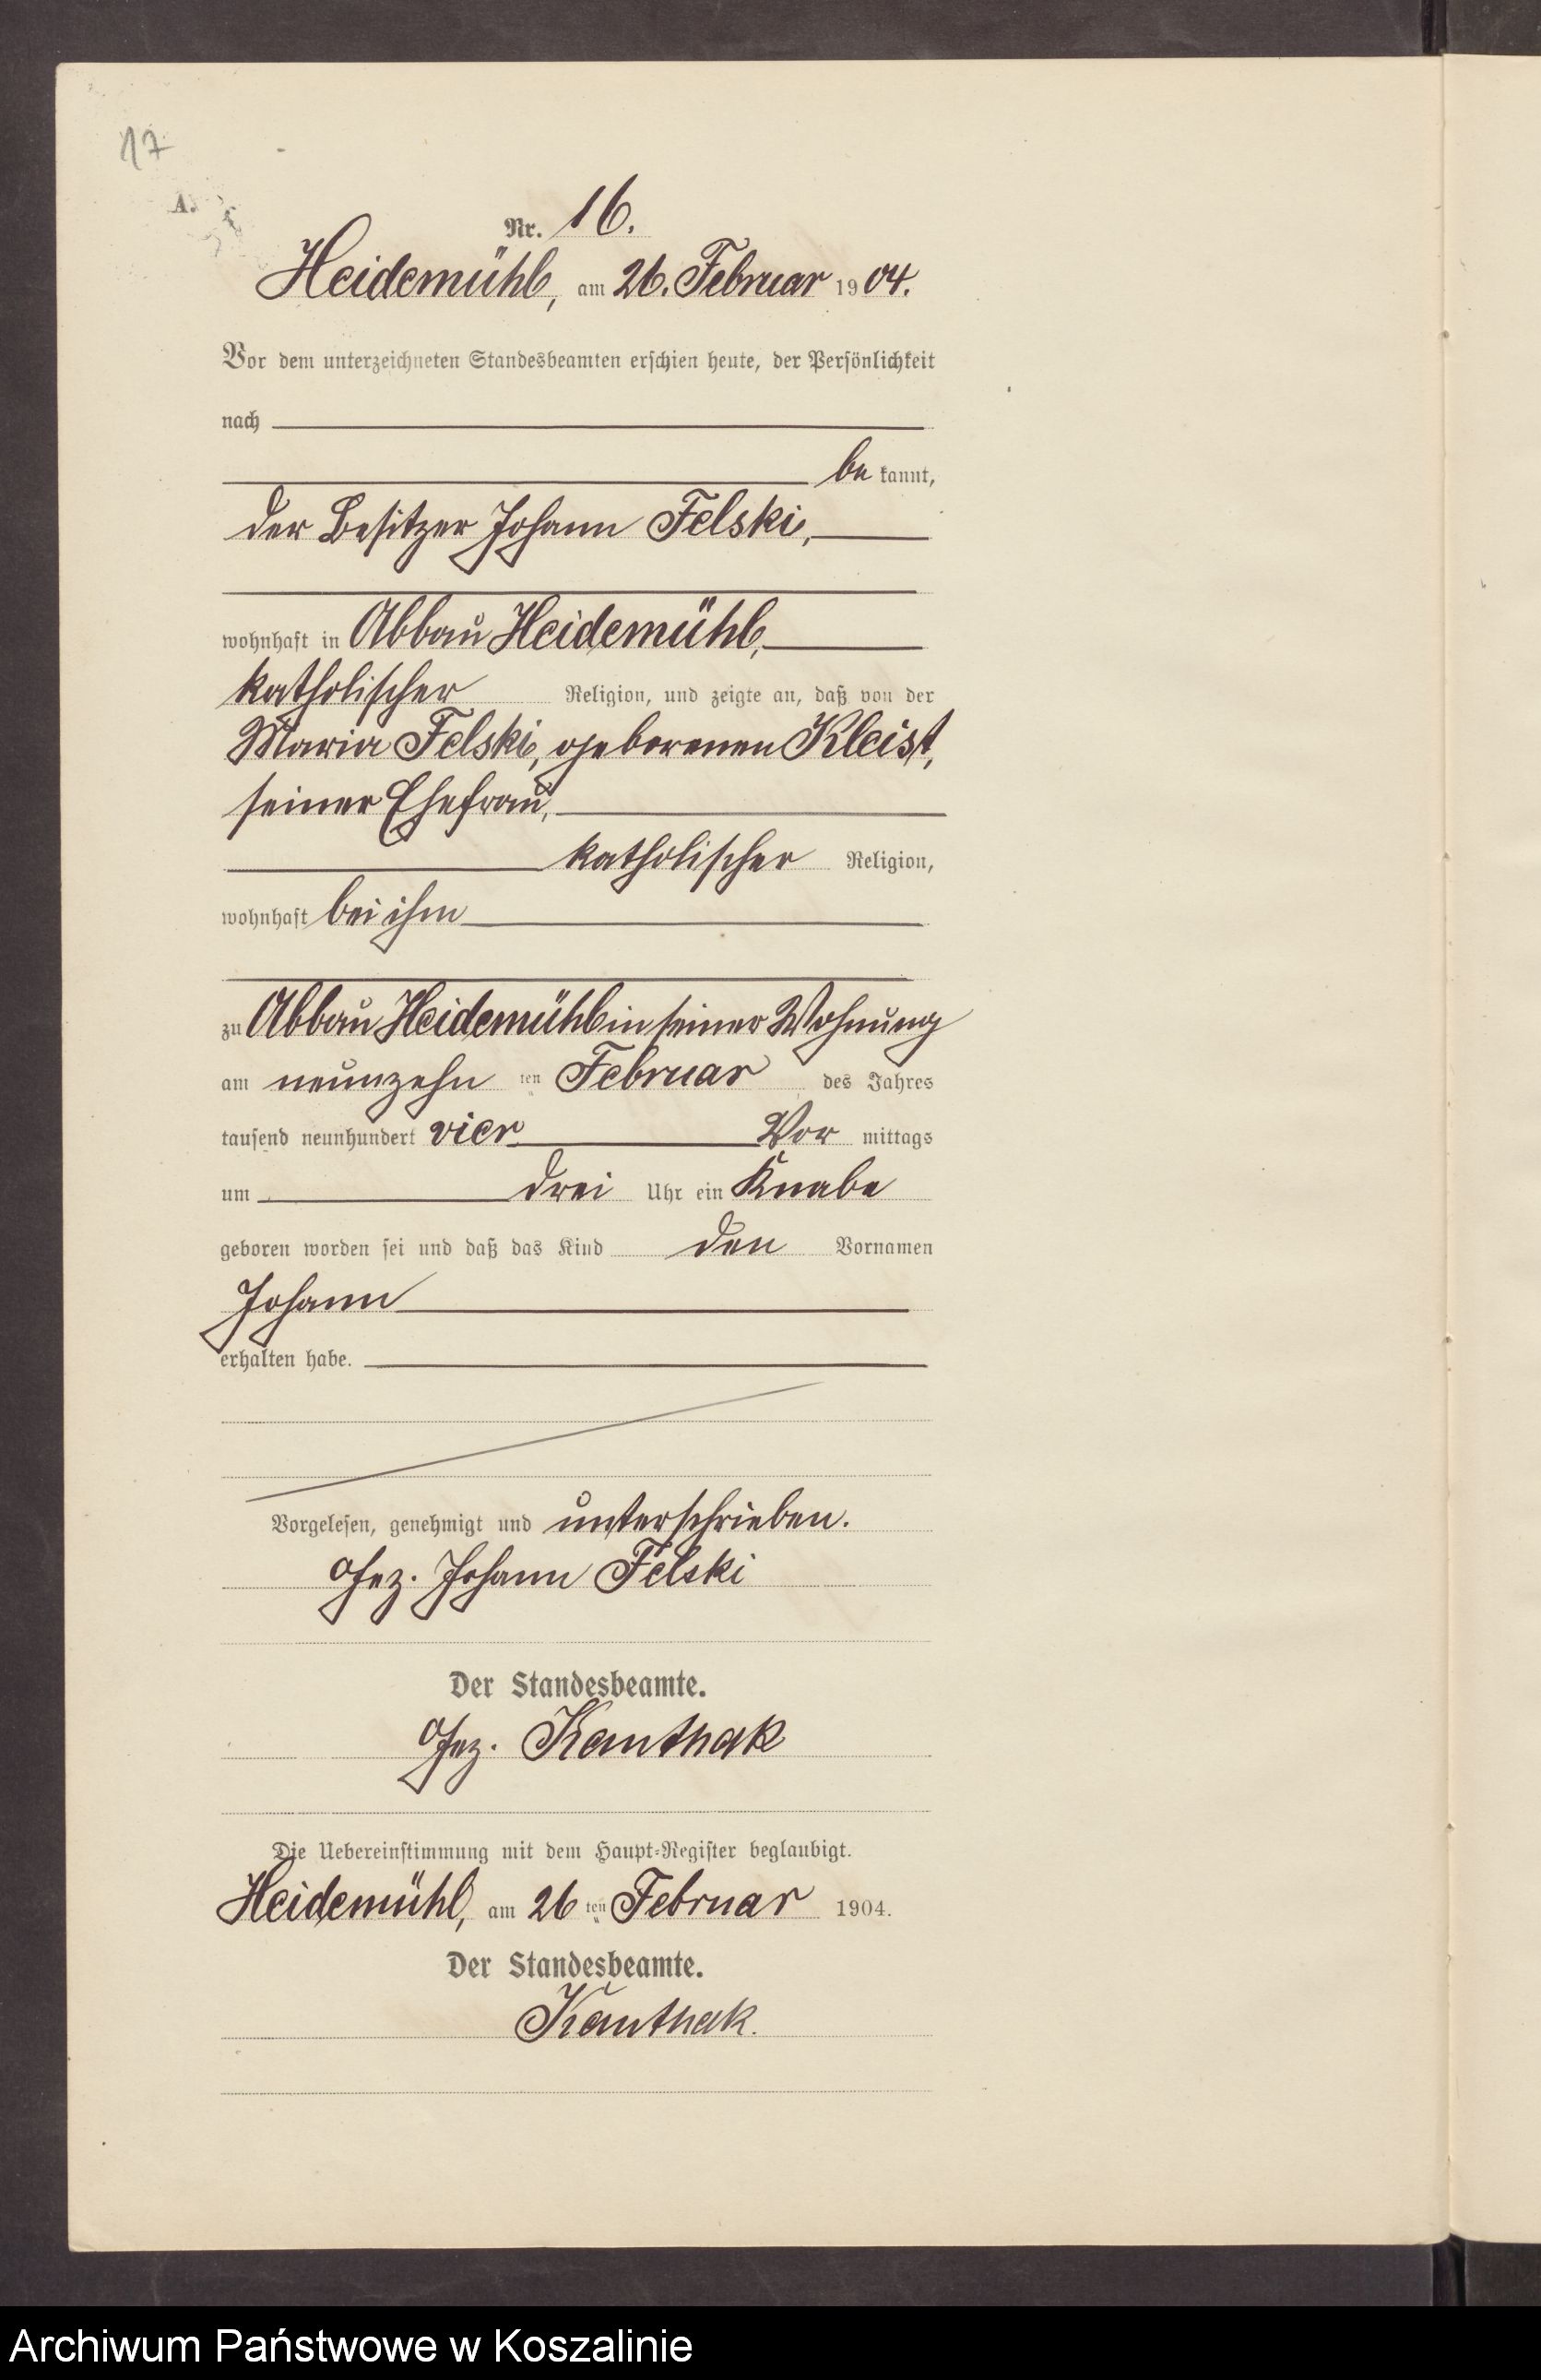 17
A.
Nr. 16.
Heidemühl, am 26. Februar 1904.
Vor dem unterzeichneten Standesbeamten erschien heute, der Persönlichkeit
nach
be kannt,
der Besitzer Johann Felski,
wohnhaft in Abbau Heidemühl,
katholischer Religion, und zeigte an, daß von der
Maria Felski, geborenen Kleist,
seiner Ehefrau,
katholischer Religion,
wohnhaft bei ihm
zu Abbau Heidemühl in seiner Wohnung
am neunzehn ten Februar des Jahres
tausend neunhundert vier Vor mittags
um drei Uhr ein Knabe
geboren worden sei und daß das Kind den Vornamen
Johann
erhalten habe.
Vorgelesen, genehmigt und unterschrieben.
gez. Johann Felski
Der Standesbeamte.
gez. Kanthak
Die Uebereinstimmung mit dem Haupt-Register beglaubigt.
Heidemühl, am 26 ten Februar 1904.
Der Standesbeamte.
Kanthak.
Archiwum Państwowe w Koszalinie